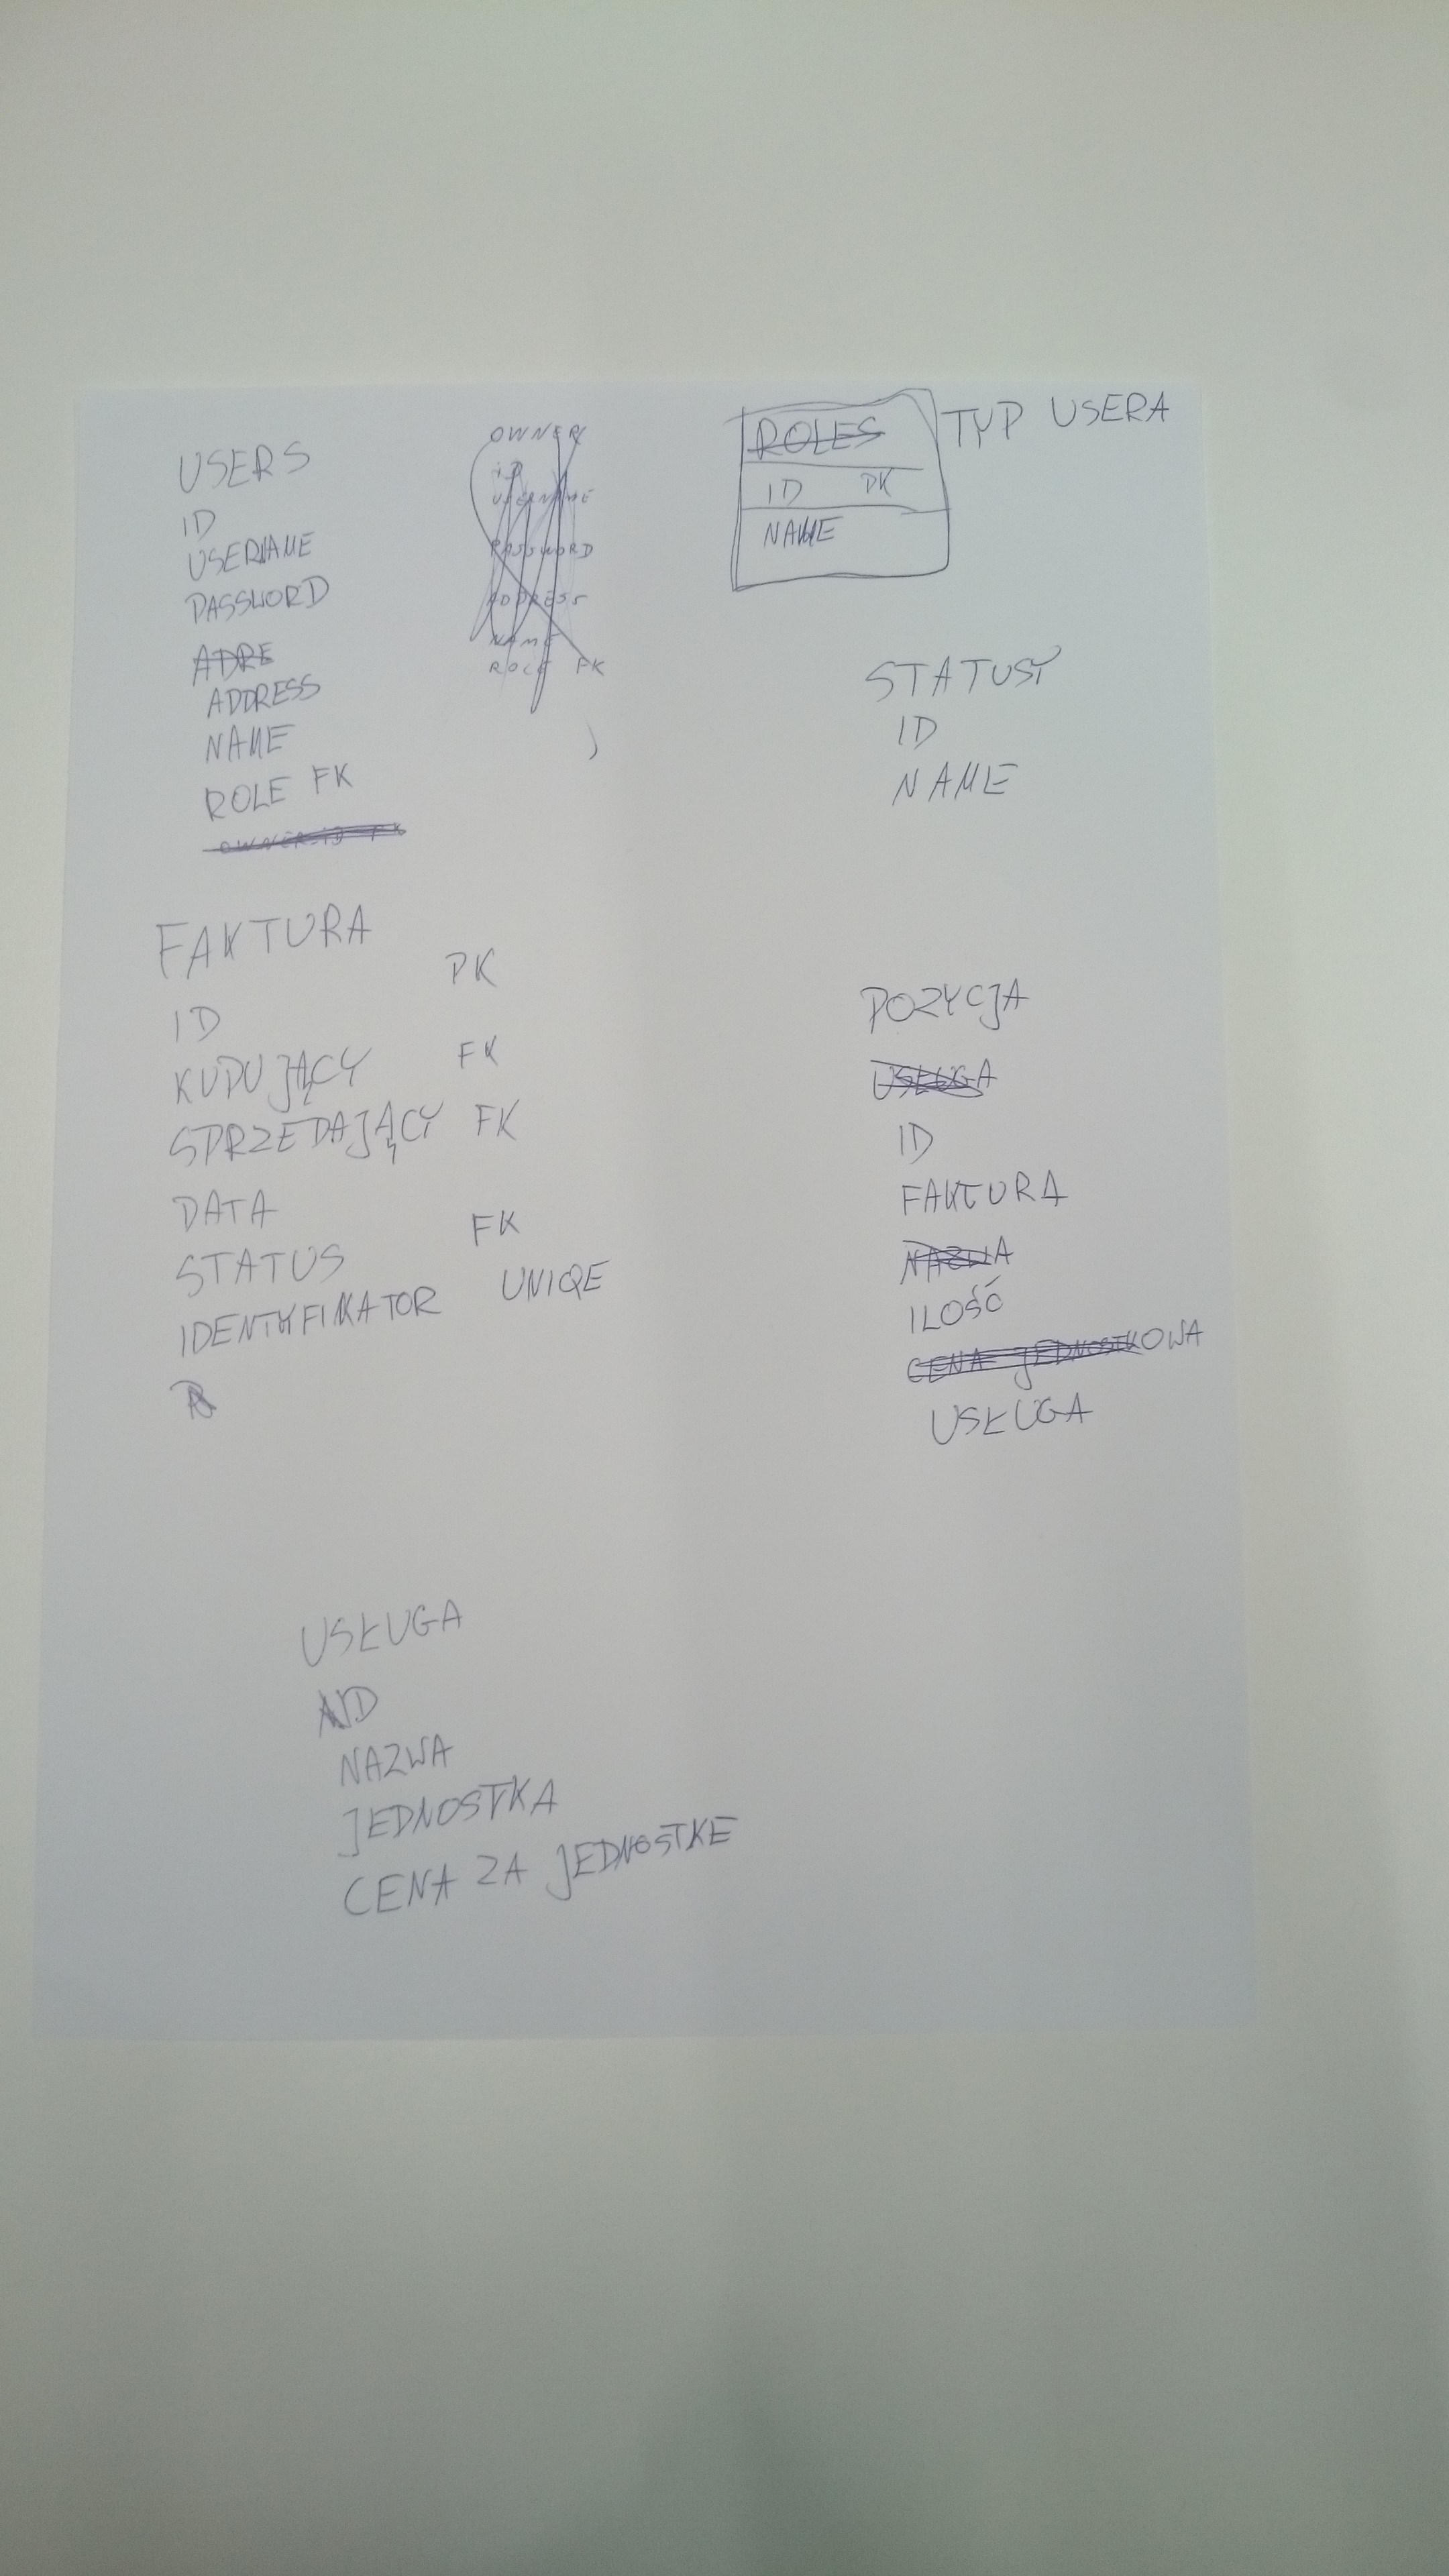 USERS
ID
USERNAME
PASSWORD
ADRE
ADDRESS
NAME
ROLE FK
OWNERID FK
OWNER
ID
USERNAME
PASSWORD
ADDRESS
NAME
ROLE FK
ROLES
ID PK
NAME
TYP USERA
STATUSY
ID
NAME
FAKTURA
PK
ID
KUPUJĄCY FK
SPRZEDAJĄCY FK
DATA
STATUS FK
IDENTYFIKATOR UNIQE
POZYCJA
USŁUGA
ID
FAKTURA
NAZWA
ILOŚĆ
CENA JEDNOSTKOWA
USŁUGA
USŁUGA
ID
NAZWA
JEDNOSTKA
CENA ZA JEDNOSTKE